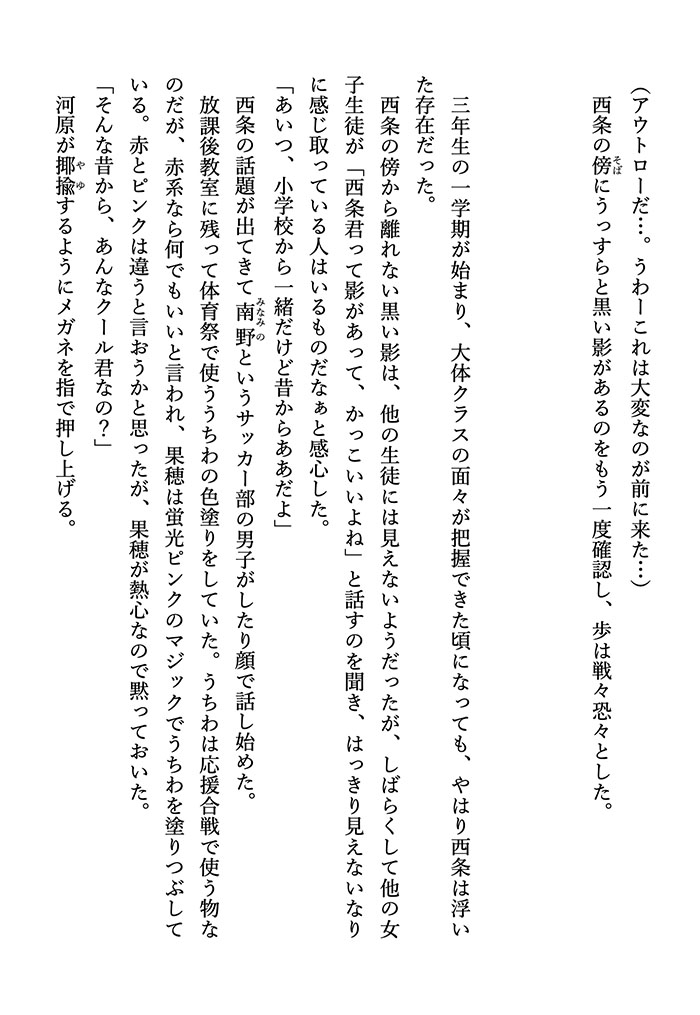 （アウトローだ…。うわーこれは大変なのが前に来た…）
西条の傍にうっすらと黒い影があるのをもう一度確認し、歩は戦々恐々とした。
三年生の一学期が始まり、大体クラスの面々が把握できた頃になっても、やはり西条は浮い
た存在だった。
西条の傍から離れない黒い影は、他の生徒には見えないようだったが、しばらくして他の女
子生徒が「西条君って影があって、かっこいいよね」と話すのを聞き、はっきり見えないなり
に感じ取っている人はいるものだなぁと感心した。
「あいつ、小学校から一緒だけど昔からああだよ」
西条の話題が出てきて南野というサッカー部の男子がしたり顔で話し始めた。
放課後教室に残って体育祭で使ううちわの色塗りをしていた。うちわは応援合戦で使う物な
のだが、赤系なら何でもいいと言われ、果穂は蛍光ピンクのマジックでうちわを塗りつぶして
いる。赤とピンクは違うと言おうかと思ったが、果穂が熱心なので黙っておいた。
「そんな昔から、あんなクール君なの？」
河原が揶揄するようにメガネを指で押し上げる。